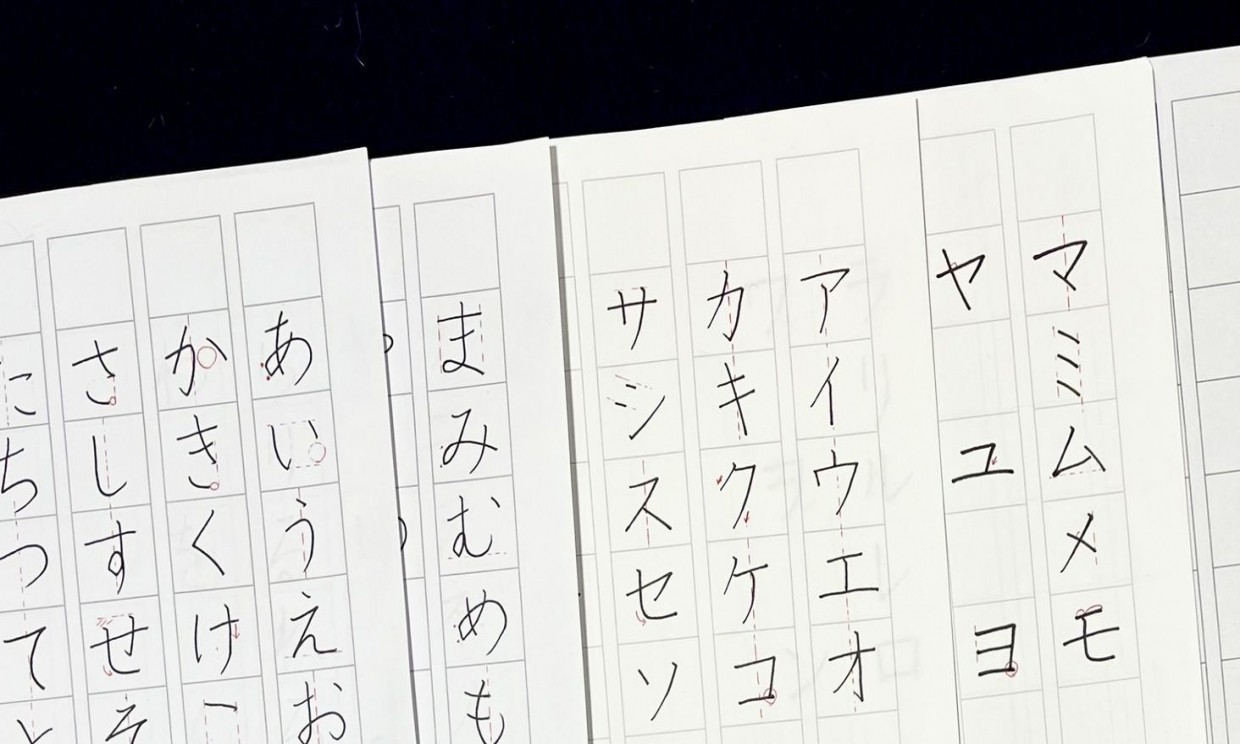 マミムメモ
ヤユヨ
アイウエオ
カキクケコ
サシスセソ
まみむめも
あいうえお
かきくけ
さしすせそ
ちつて